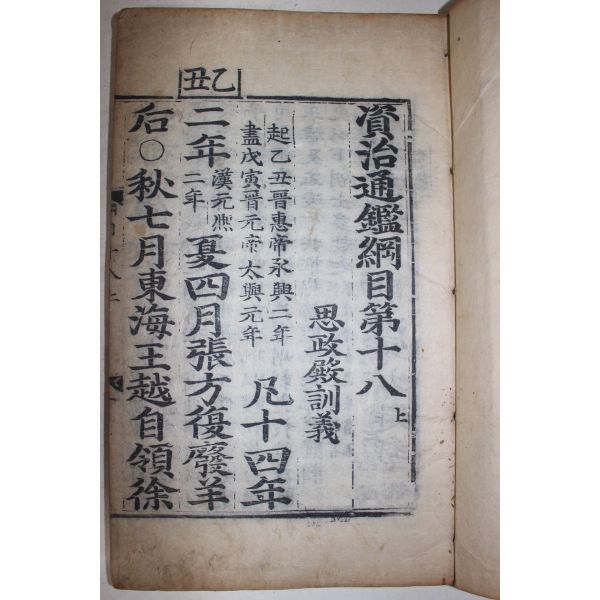 乙丑
資治通鑑綱目第十八上
思政殿訓義
起乙丑晉惠帝永興二年
盡戊寅晉元帝太興元年
凡十四年
二年漢元熙二年夏四月張方復廢羊
后○秋七月東海王越自領徐